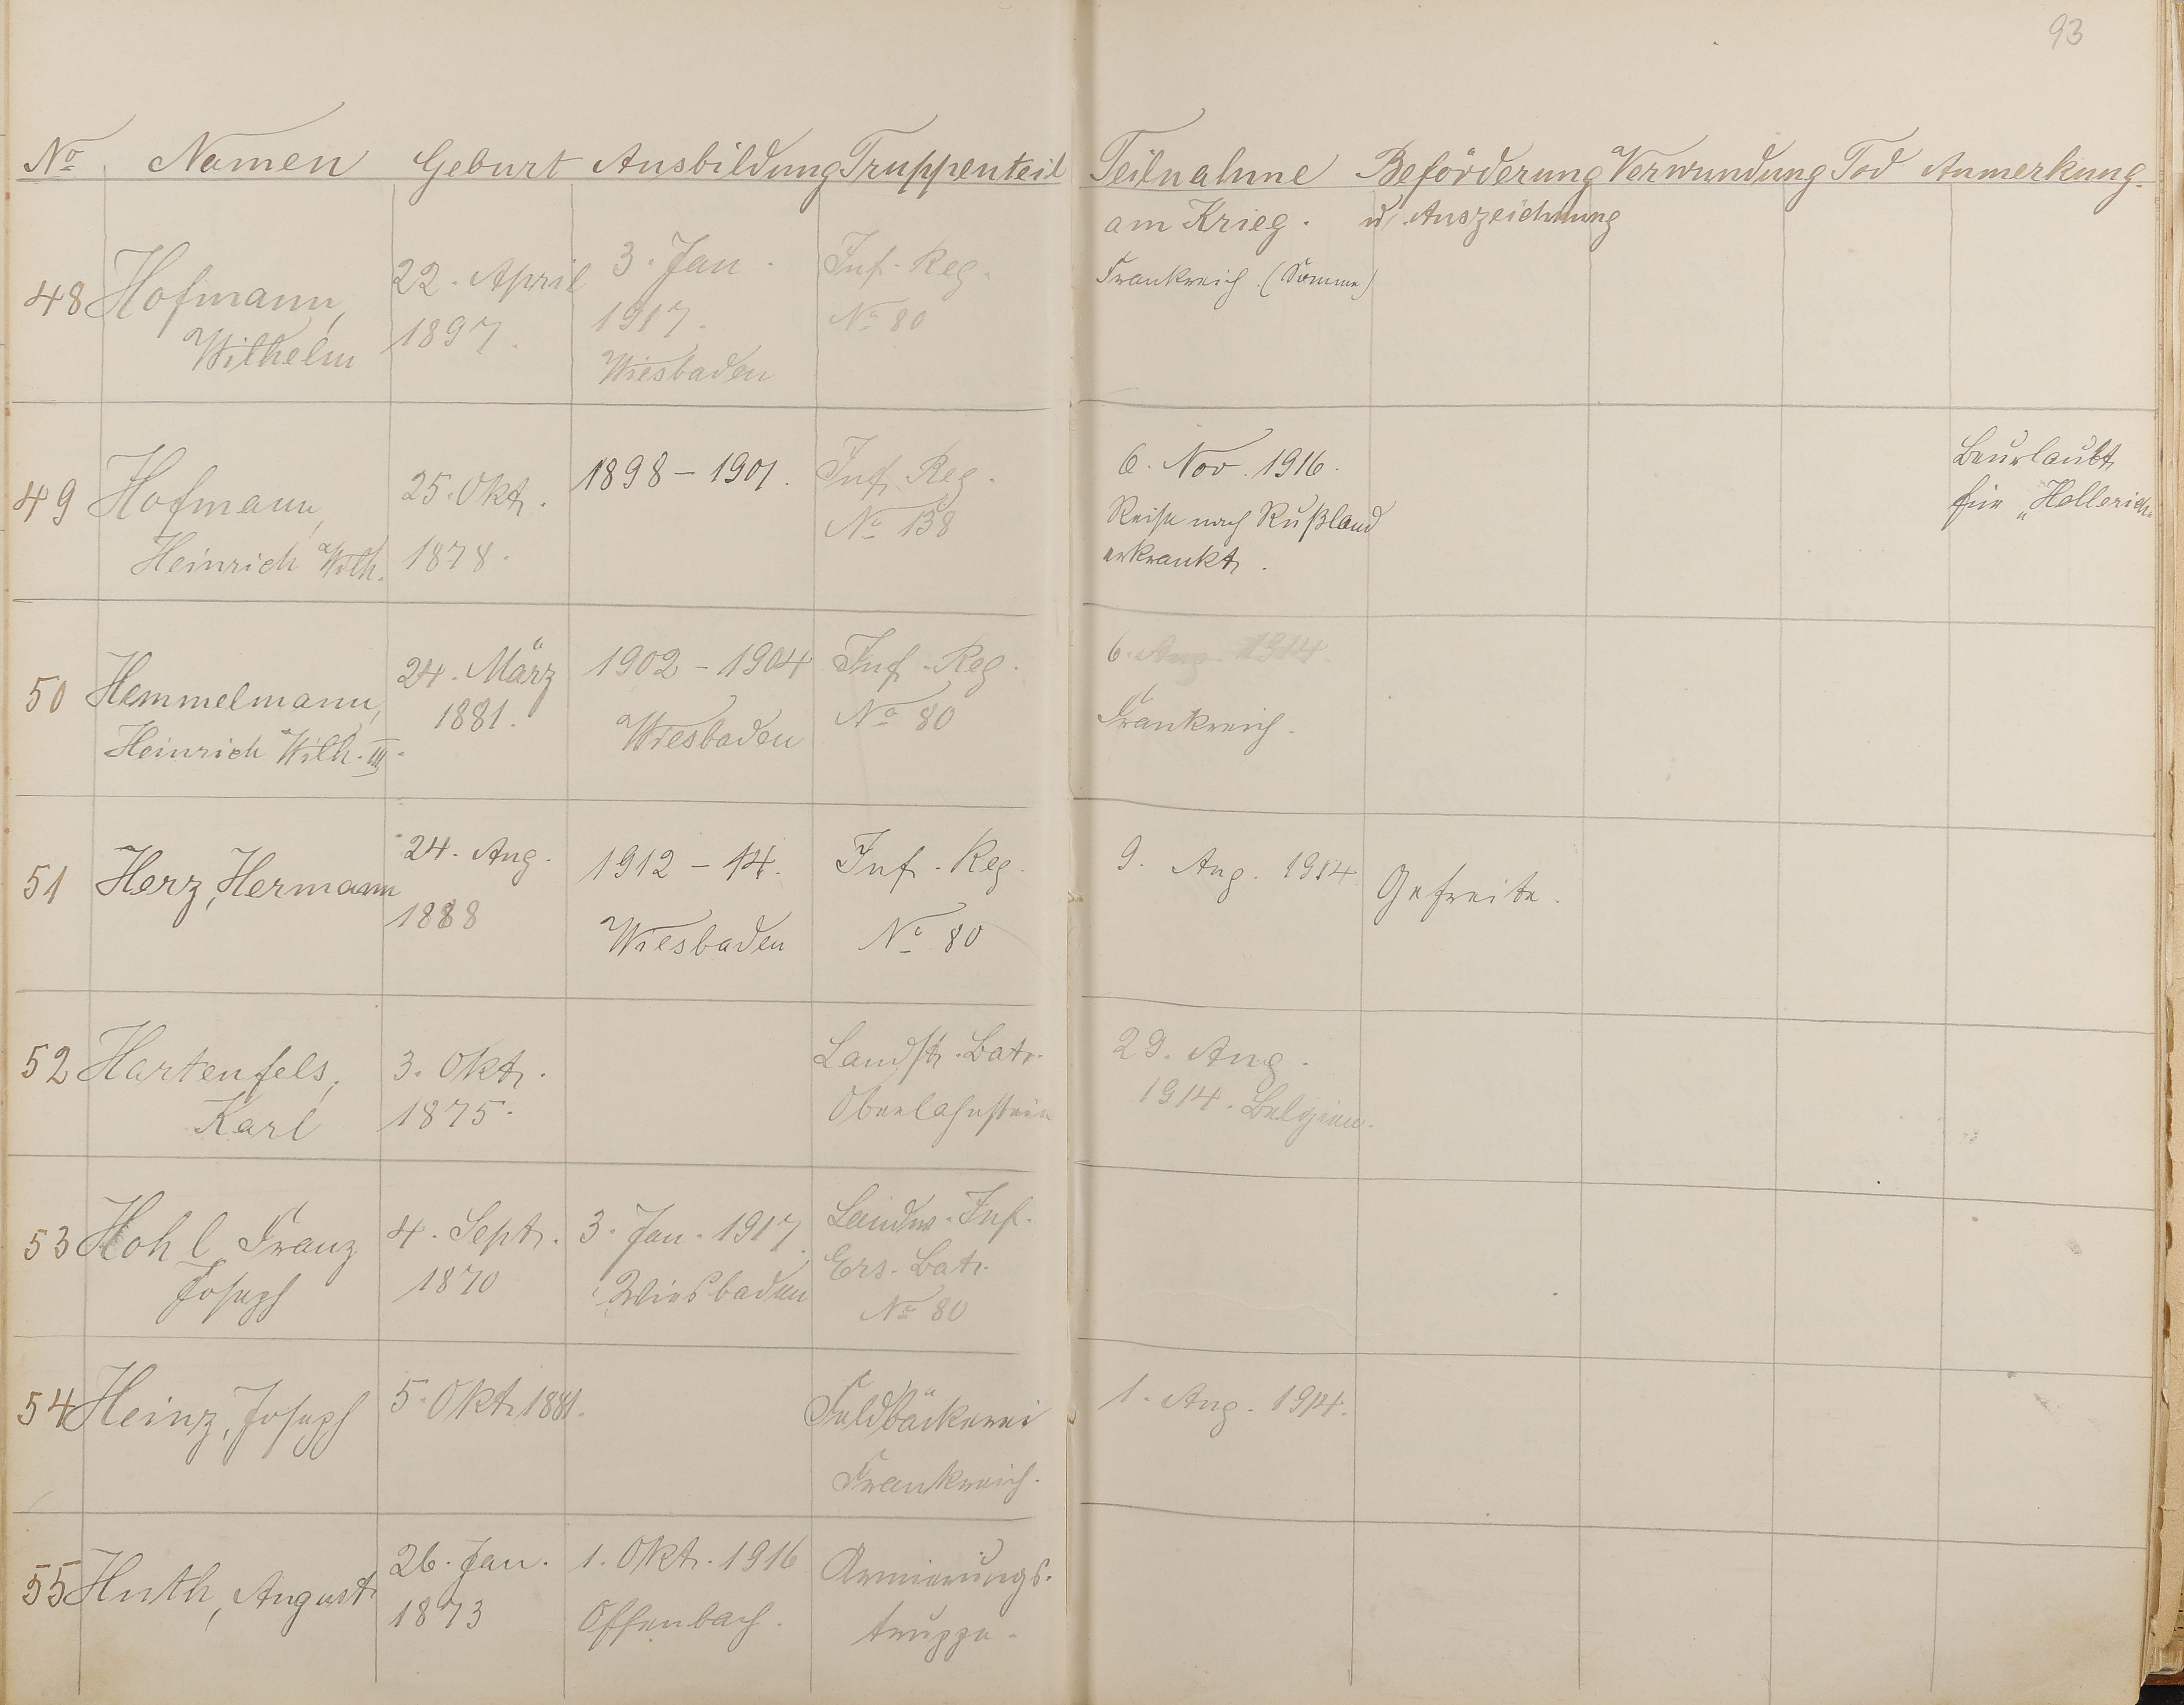 93
No Namen Geburt Ausbildung Truppenteil Teilnahme Beförderung Verwundung Tod Anmerkung.
am Krieg. u. Auszeichnung
48 Hofmann, Wilhelm
22. April 1897.
3. Jan. 1917. Wiesbaden
Inf. Reg. No 80
Frankreich. (Somme)
49 Hofmann, Heinrich Wilh.
25. Okt. 1878.
1898 - 1901.
Inf. Reg. No 138
6. Nov. 1916.
Reise nach Rußland
erkrankt.
Beurlaubt
für „Hollerich"
50 Hemmelmann, Heinrich Wilh. III.
24. März 1881.
1902 - 1904 Wiesbaden
Inf. Reg. No 80
6. Aug. 1914.
Frankreich.
51 Herz, Hermann
24. Aug. 1888
1912 - 14. Wiesbaden
Inf. Reg. No 80
9. Aug. 1914
Gefreite.
52 Hartenfels, Karl
3. Okt. 1875.
Landst. Bat.
Oberlahnstein
29. Aug.
1914. Belgien.
53 Hohl Franz Joseph
4. Sept. 1870
3. Jan. 1917. Wiesbaden
Landw. Inf.
Ers. Bat.
No 80
54 Heinz, Joseph
5. Okt. 1881.
Feldbäckerei
Frankreich.
1. Aug. 1914.
55 Huth, August
26. Jan. 1873
1. Okt. 1916 Offenbach.
Armierungs-
truppe.